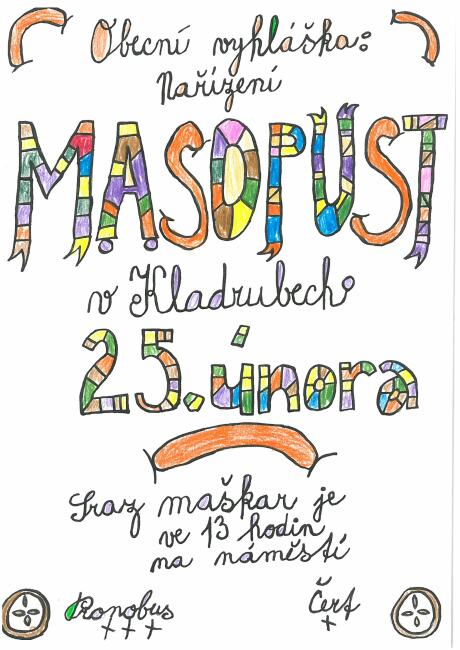 Obecní vyhláška:
Nařízení
MASOPUST
v Kladrubech
25. února
Sraz maškar je
ve 13 hodin
na náměstí
Ropobus Čert
+++ +